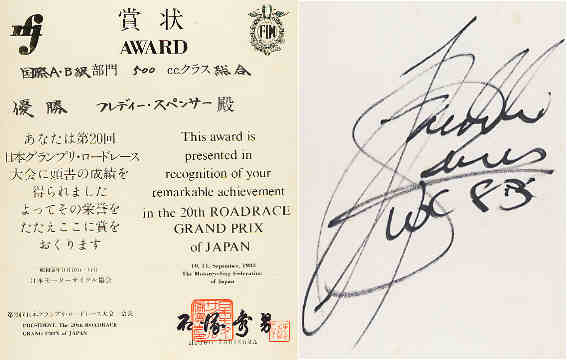 賞状
AWARD
国際A・B級部門 500 ccクラス 総合
優勝 フレディー・スペンサー 殿
あなたは第20回
日本グランプリ・ロードレース
大会に頭書の成績を
得られました
よってその栄誉を
たたえここに賞を
おくります
日本モーターサイクル協会
第20回日本グランプリ・ロードレース大会 会長
PRESIDENT, The 20th ROADRACE
GRAND PRIX of JAPAN
FIM
This award is
presented in
recognition of your
remarkable achievement
in the 20th ROADRACE
GRAND PRIX
of JAPAN
September,
The Motorcycling Federation
of Japan
Freddie
WC 83